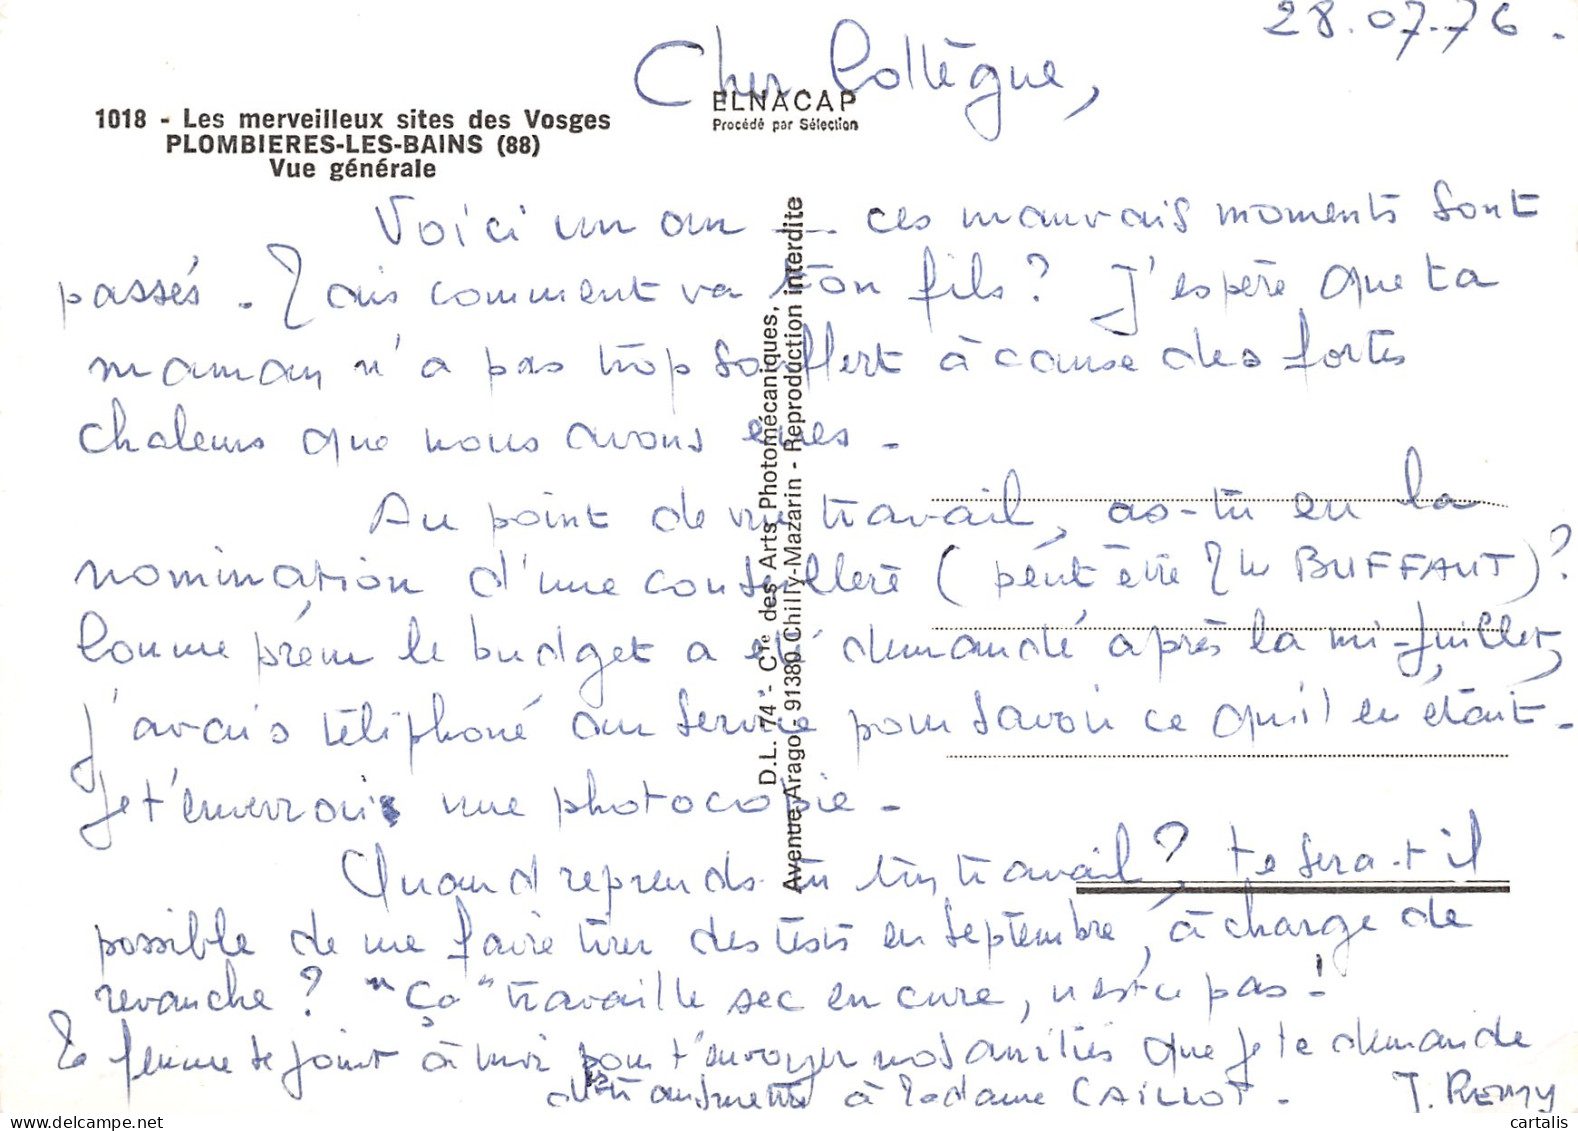 28.07.76.
Cher Collègue,
ELNACAP
Procédé par Sélection
1018 - Les merveilleux sites des Vosges
PLOMBIERES-LES-BAINS (88)
Vue générale
Voici un an __ ces mauvais moments sont
passés. Mais comment va ton fils? J'espère que ta
maman n'a pas trop souffert à cause des fortes
chaleurs que nous avons eues.
Au point de vue travail, as-tu eu la
nomination d'une conseillère (peut être Mle BUFFAUT)?
Comme prévu le budget a été demandé après la mi-Juillet,
j'avais téléphoné au service pour savoir ce qu'il en était.
Je t'enverrai une photocopie.
Quand reprends-tu ton travail? te sera-t il
possible de me faire tirer des tests en septembre, à charge de
revanche? "Ça" travaille sec en cure, n'est ce pas!
Ma femme se joint à moi pour t'envoyer nos amitiés que je te demande
de transmettre à Madame CAILLOT. J. REMY
D.L. 74 - Cie des Arts Photomécaniques,
Avenue Arago - 91380 Chilly-Mazarin - Reproduction interdite
cartalis